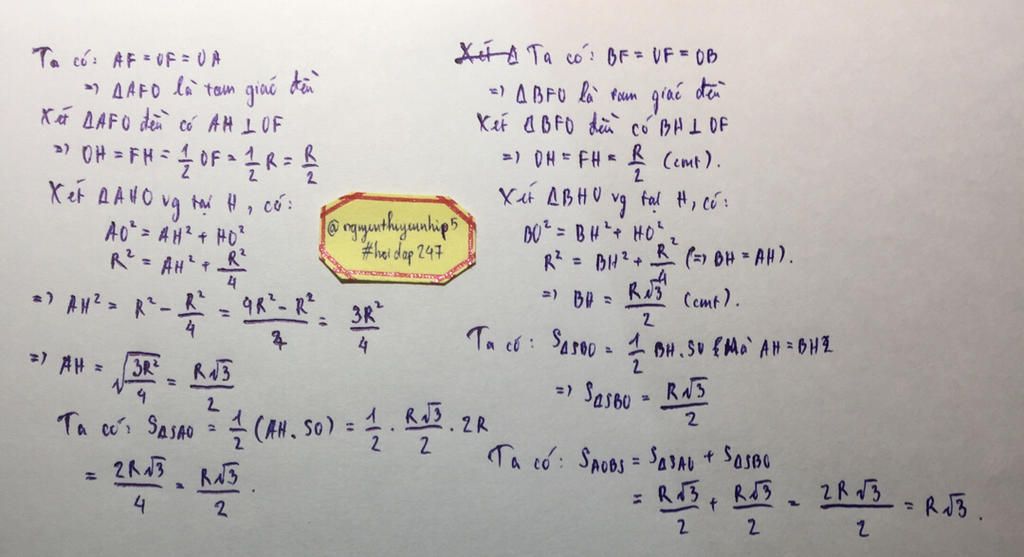 Ta có: AF = OF = OA
=> ΔAFO là tam giác đều
Xét ΔAFO đều có AH ⊥ OF
=> OH = FH = 1/2 OF = 1/2 R = R/2
Xét ΔAHO vg tại H, có:
AO² = AH² + HO²
R² = AH² + R²/4
=> AH² = R² - R²/4 = (4R² - R²)/4 = 3R²/4
=> AH = √(3R²/4) = R√3/2
Ta có: SΔSAO = 1/2 (AH. SO) = 1/2 . R√3/2 . 2R
= 2R√3/4 = R√3/2.
@nguyenthuyeunhip5
#hoidap247
Xét Δ Ta có: BF = OF = OB
=> ΔBFO là tam giác đều
Xét ΔBFO đều có BH ⊥ OF
=> OH = FH = R/2 (cmt).
Xét ΔBHO vg tại H, có:
BO² = BH² + HO²
R² = BH² + R²/4 (=> BH = AH).
=> BH = R√3/2 (cmt).
Ta có: SΔSBO = 1/2 BH. SO {Mà AH = BH}
=> SΔSBO = R√3/2
Ta có: SAOBS = SΔSAO + SΔSBO
= R√3/2 + R√3/2 = 2R√3/2 = R√3.